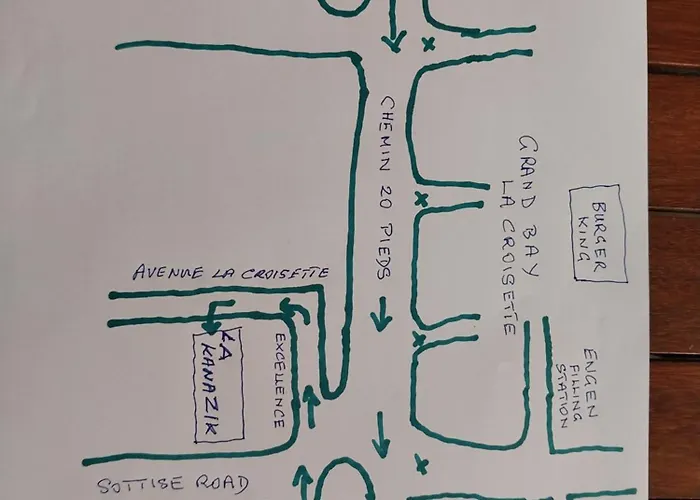 CHEMIN 20 PIEDS
GRAND BAY
LA CROISETTE
BURGER
KING
AVENUE LA CROISETTE
EXCELLENCE
KA
KANAZIK
ENGEN
FILLING
STATION
SOTTISE ROAD